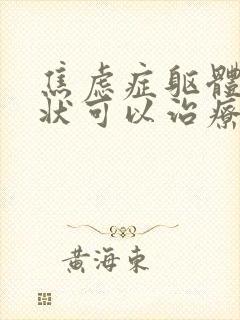 焦虑症躯體
状可以治療
黃海東